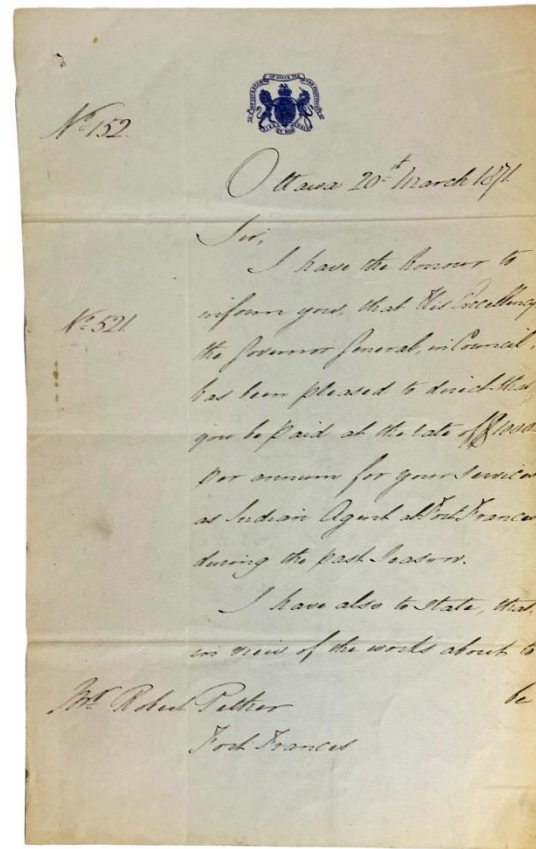 No. 152.
Ottawa 20th March 1871.
Sir,
I have the honour to
inform you, that His Excellency
the Governor General, in Council,
No. 521
has been pleased to direct that
you be paid at the rate of $1000
per annum for your services
as Indian Agent at Fort Frances
during the past Season.
I have also to state, that,
in view of the works about to
be
Mr. Robert Pither
Fort Frances